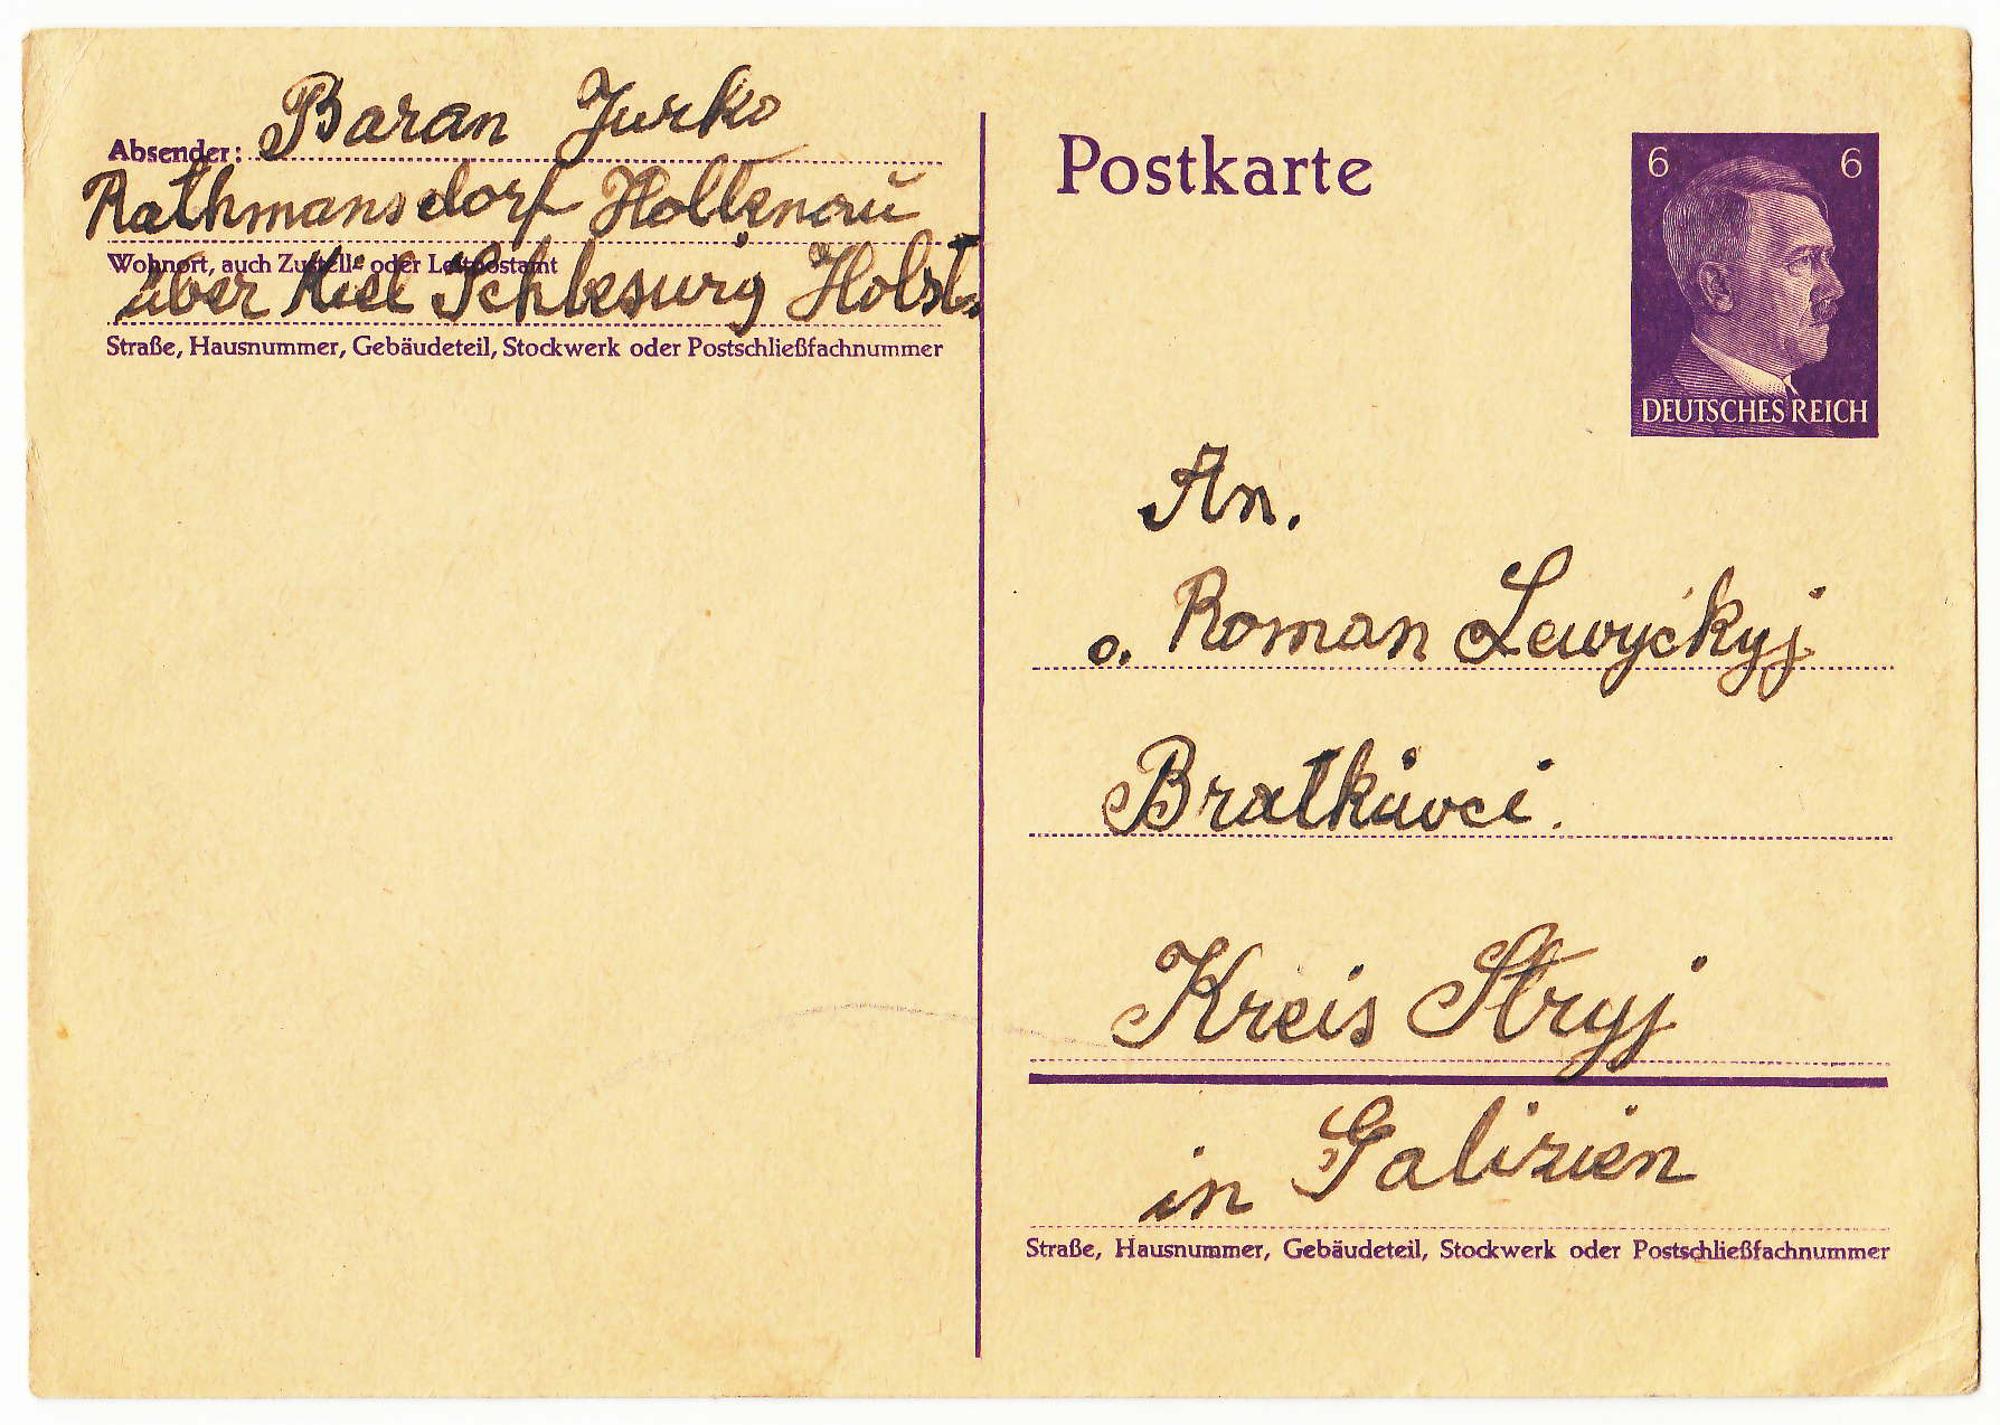 Absender: Baran Jurko
Rathmansdorf Holtenau
Wohnort, auch Zustell- oder Leitpostamt
über Kiel Schlesurig Holst.
Straße, Hausnummer, Gebäudeteil, Stockwerk oder Postschließfachnummer
Postkarte
6 6
DEUTSCHES REICH
An.
o. Roman Lewyćkyj
Bratkiwci.
Kreis Stryj
in Galizien
Straße, Hausnummer, Gebäudeteil, Stockwerk oder Postschließfachnummer